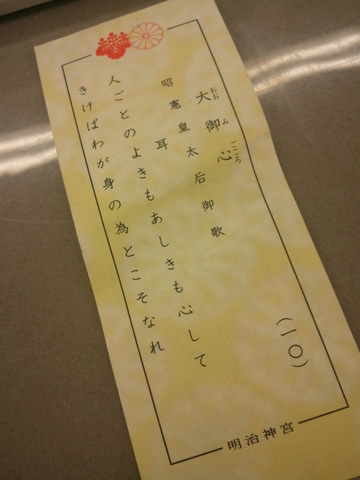 大御心 (一〇)
おおみこころ
昭憲皇太后御歌
耳
人ごとのよきもあしきも心して
きけばわが身の為とこそなれ
明治神宮